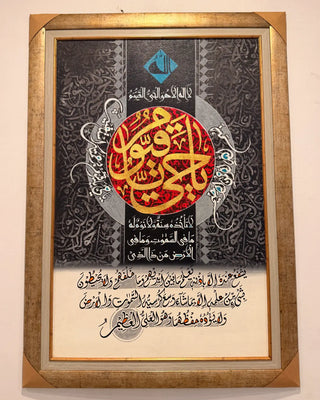 الله
لا إله إلا هو الحي القيوم
يا حي يا قيوم
لا تأخذه سنة ولا نوم له
ما في السموت وما في
الأرض من ذا الذي
يشفع عنده إلا بإذنه يعلم ما بين أيديهم وما خلفهم ولا يحيطون
بشئ من علمه إلا بما شاء وسع كرسيه السموت والأرض
ولا يؤده حفظهما وهو العلي العظيم